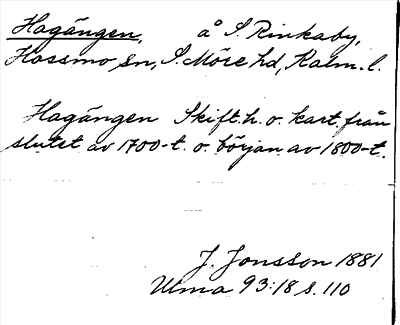 Hagängen, å S. Rinkaby,
Hossmo sn, S. Möre hd, Kalm. l.
Hagängen Skift. h. o. kart. från
slutet av 1700-t. o. början av 1800-t.
J. Jonsson 1881
Ulma 93:18 s. 110